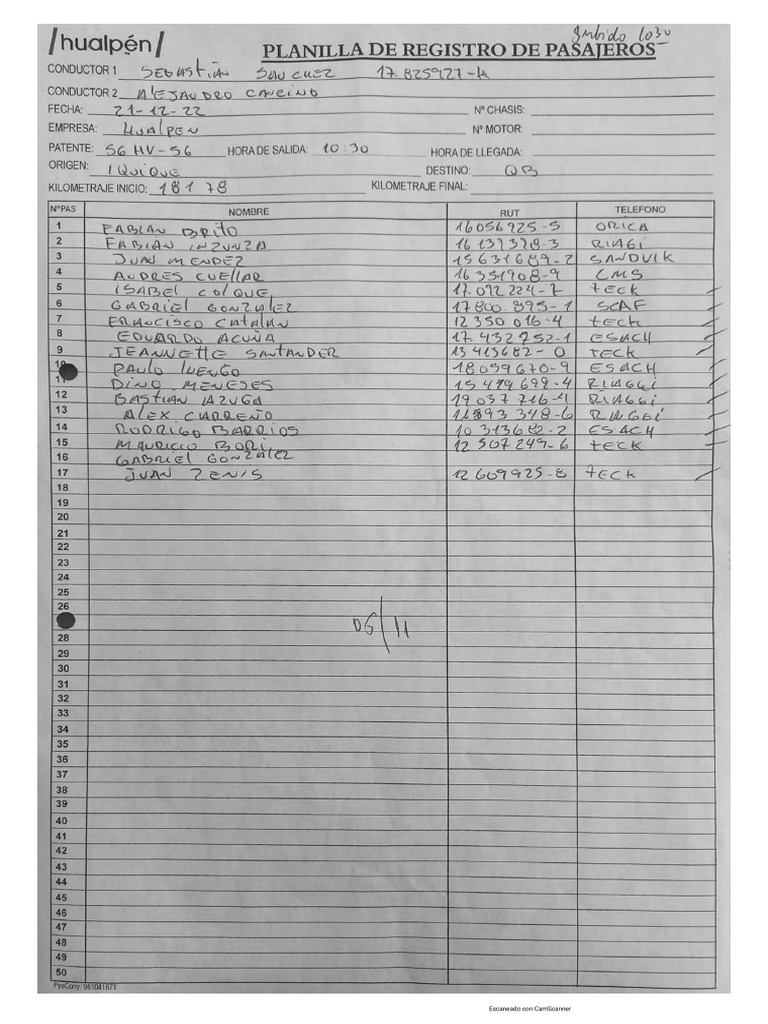 /hualpén/
PLANILLA DE REGISTRO DE PASAJEROS
CONDUCTOR 1 SEBASTIÁN SANCHEZ 17.825927-K
CONDUCTOR 2 ALEJANDRO CANCINO
FECHA: 21-12-22 Nº CHASIS:
EMPRESA: HUALPEN Nº MOTOR:
PATENTE: SG HV-56 HORA DE SALIDA: 10:30 HORA DE LLEGADA:
ORIGEN: IQUIQUE DESTINO: QB
KILOMETRAJE INICIO: 181 78 KILOMETRAJE FINAL:
NºPAS NOMBRE RUT TELEFONO
1 FABIAN BRITO 16056925-5 ORICA
2 FABIAN INZUNZA 16137378-3 RIAGI
3 JUAN MENDEZ 15631689-2 SANDVIK
4 ANDRES CUELLAR 16351908-9 CMS
5 ISABEL COLQUE 17.092224-7 TECK
6 GABRIEL GONZALEZ 17800.895-1 SCAF
7 FRANCISCO CATALAN 12350 016-4 TECK
8 EDUARDO ACUÑA 17.432752-1 ESACH
9 JEANNETTE SANTANDER 13413682-0 TECK
10 PAULO LUENGO 18059670-9 ESACH
11 DINO MENESES 15479699-4 RIAGGI
12 BASTIAN 19037716-4 RIAGGI
13 ALEX CARREÑO 348-6 RIAGGI
14 RODRIGO BARRIOS 10313682-2 ESACH
15 MAURICIO BORI 12507249-6 TECK
16 GABRIEL GONZALEZ
17 JUAN ZENIS 12609925-8 TECK
18
19
20
21
22
23
24
25
26
06/11
28
29
30
31
32
33
34
35
36
37
38
39
40
41
42
43
44
45
46
47
48
49
50
PyaCony: 961041871
Escaneado con CamScanner